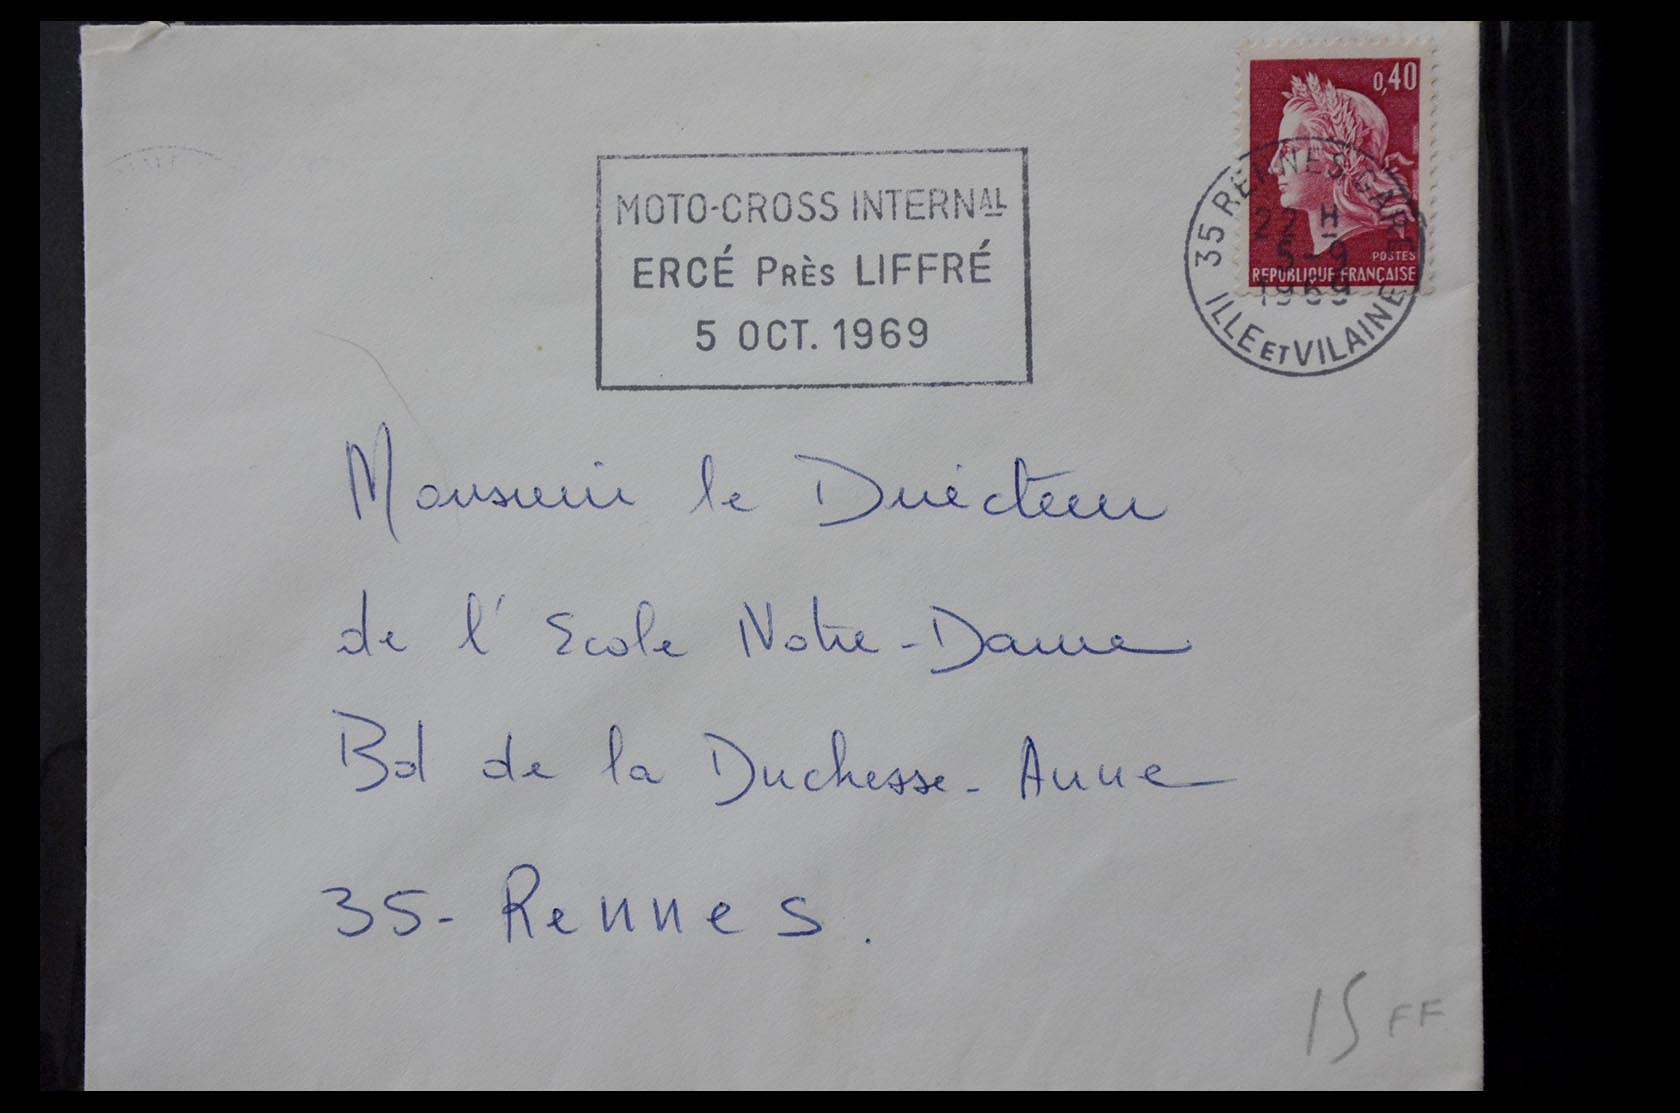 0,40
POSTES
REPUBLIQUE FRANÇAISE
35 RENNES GARE
22 H
5-9
1969
ILLE ET VILAINE
MOTO-CROSS INTERNAL
ERCÉ PRÈS LIFFRÉ
5 OCT. 1969
Monsieur le Directeur
de l'Ecole Notre-Dame
Bd de la Duchesse-Anne
35-Rennes.
15 FF